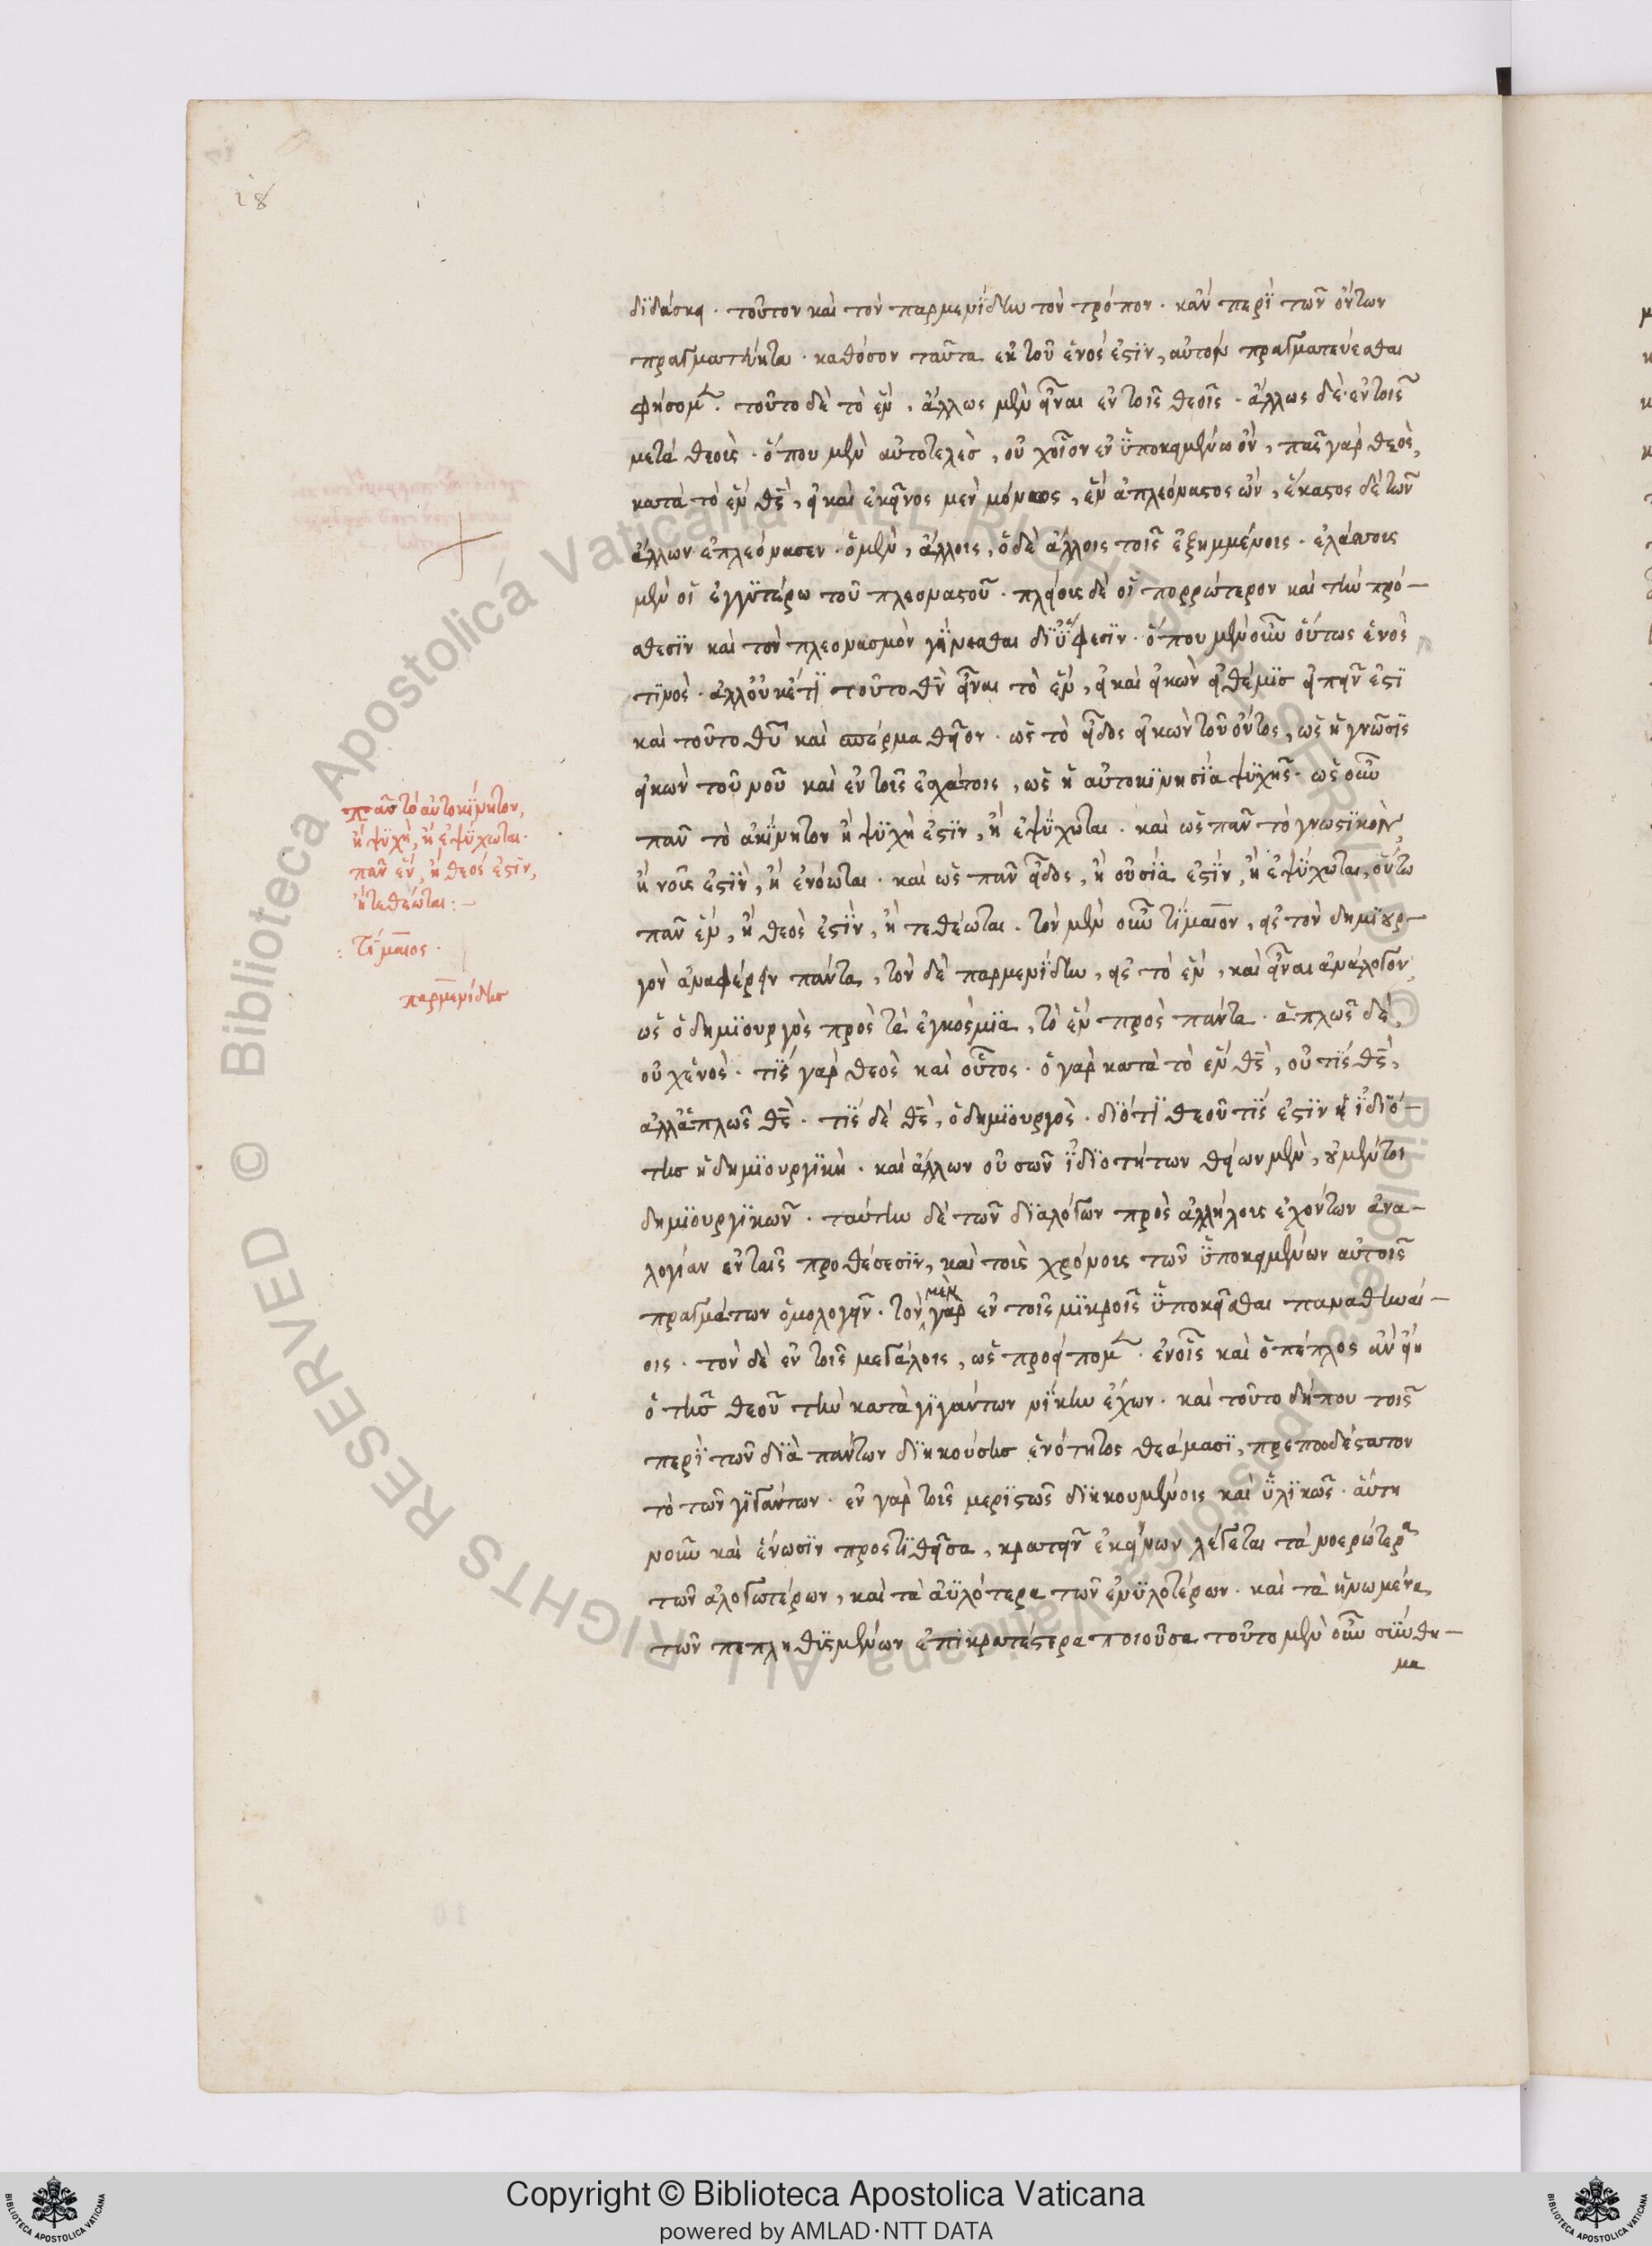 18
διδάσκει. τοῦτον καὶ τὸν παρμενίδην τὸν τρόπον. κἂν περὶ τῶν ὄντων
πραγματεύηται. καθόσον ταῦτα ἐκ τοῦ ἑνός ἐστιν, αὐτὸν πραγματεύεσθαι
φήσομεν. τοῦτο δὲ τὸ ἓν, ἄλλως μὲν εἶναι ἐν τοῖς θεοῖς. ἄλλως δὲ ἐν τοῖς
μετὰ θεοὺς. ὅπου μὲν αὐτοτελὲς, οὐχ οἷον ἐν ὑποκειμένω ὂν, πᾶς γὰρ θεὸς,
κατὰ τὸ ἓν θεὸς, εἰ καὶ ἐκεῖνος μὲν μόνως, ἓν ἀπλεόναστος ὢν, ἕκαστος δὲ τῶν
ἄλλων ἐπλεόνασεν. ὁ μὲν, ἄλλοις, ὁ δὲ ἄλλοις τοῖς ἐξημμένοις. ἐλάττοις
μὲν οἱ ἐγγυτέρω τοῦ πλεοναστοῦ. πλείοις δὲ οἱ πορρώτερον καὶ τὴν πρό-
σθεσιν καὶ τὸν πλεονασμὸν γίνεσθαι δι' ὕφεσιν. ὅπου μὲν οὖν οὕτως ἑνὸς
τινὸς. ἀλλ' οὐκέτι τοῦτο θεὸν εἶναι τὸ ἓν, εἰ καὶ εἰκὼν εἰ θέμις εἰπεῖν ἐστι
καὶ τοῦτο θεοῦ καὶ σπέρμα θεῖον. ὡς τὸ εἶδος εἰκὼν τοῦ ὄντος, ὡς ἡ γνῶσις
εἰκὼν τοῦ νοῦ καὶ ἐν τοῖς ἐσχάτοις, ὡς ἡ αὐτοκινησία ψυχῆς. ὡς οὖν
πᾶν τὸ ἀκίνητον ἢ ψυχή ἐστιν, ἢ ἐψύχωται. καὶ ὡς πᾶν τὸ γνωστικὸν,
ἢ νοῦς ἐστὶν, ἢ ἐνόωται. καὶ ὡς πᾶν εἶδος, ἢ οὐσία ἐστὶν, ἢ ἐψύχωται, οὕτω
πᾶν ἓν, ἢ θεὸς ἐστὶν, ἢ τεθέωται. τὸν μὲν οὖν τίμαιον, εἰς τὸν δημιουρ-
γὸν ἀναφέρειν πάντα, τὸν δὲ παρμενίδην, εἰς τὸ ἓν, καὶ εἶναι ἀνάλογον,
ὡς ὁ δημιουργὸς πρὸς τὰ ἐγκόσμια, τὸ ἓν πρὸς πάντα. ἁπλῶς δὲ,
οὐχ ἑνὸς. τὶς γὰρ θεὸς καὶ οὗτος. ὁ γὰρ κατὰ τὸ ἓν θεὸς, οὐ τὶς θεὸς,
ἀλλ' ἁπλῶς θεὸς. τὶς δὲ θεὸς, ὁ δημιουργὸς. διότι θεοῦ τίς ἐστιν ἡ ἰδιό-
της ἡ δημιουργικὴ. καὶ ἄλλων οὐσῶν ἰδιοτήτων θείων μὲν, οὐ μέντοι
δημιουργικῶν. ταύτην δὲ τῶν διαλόγων πρὸς ἀλλήλους ἐχόντων ἀνα-
λογίαν ἐν ταῖς προθέσεσιν, καὶ τοὺς χρόνους τῶν ὑποκειμένων αὐτοῖς
πραγμάτων ὁμολογεῖν. τὸν μὲν γὰρ ἐν τοῖς μικροῖς ὑποκεῖσθαι παναθηναί-
οις. τὸν δὲ ἐν τοῖς μεγάλοις, ὡς προείπομεν. ἐν οἷς καὶ ὁ πέπλος ἂν εἴη
ὁ τῆς θεοῦ τὴν κατὰ γιγάντων νίκην ἔχων. καὶ τοῦτο δήπου τοῖς
περὶ τῶν διὰ πάντων διηκούσης ἑνότητος θεάμασι, πρεπωδέστατον
τὸ τῶν γιγάντων. ἐν γὰρ τοῖς μεριστῶς διηκουμένοις καὶ ὑλικῶς. αὕτη
νοῦν καὶ ἕνωσιν προστιθεῖσα, κρατεῖν ἐκείνων λέγεται τὰ νοερώτερα
τῶν ἀλογωτέρων, καὶ τὰ ἀϋλότερα τῶν ἐνυλοτέρων. καὶ τὰ ἡνωμένα,
τῶν πεπληθισμένων ἐπικρατέστερα ποιοῦσα τοῦτο μὲν οὖν σύνθη-
μα
πᾶν τὸ αὐτοκίνητον,
ἢ ψυχὴ, ἢ ἐψύχωται.
πᾶν ἓν, ἢ θεός ἐστιν,
ἢ τεθέωται:-
: τίμαιος.
παρμενίδης
Copyright © Biblioteca Apostolica Vaticana
powered by AMLAD·NTT DATA